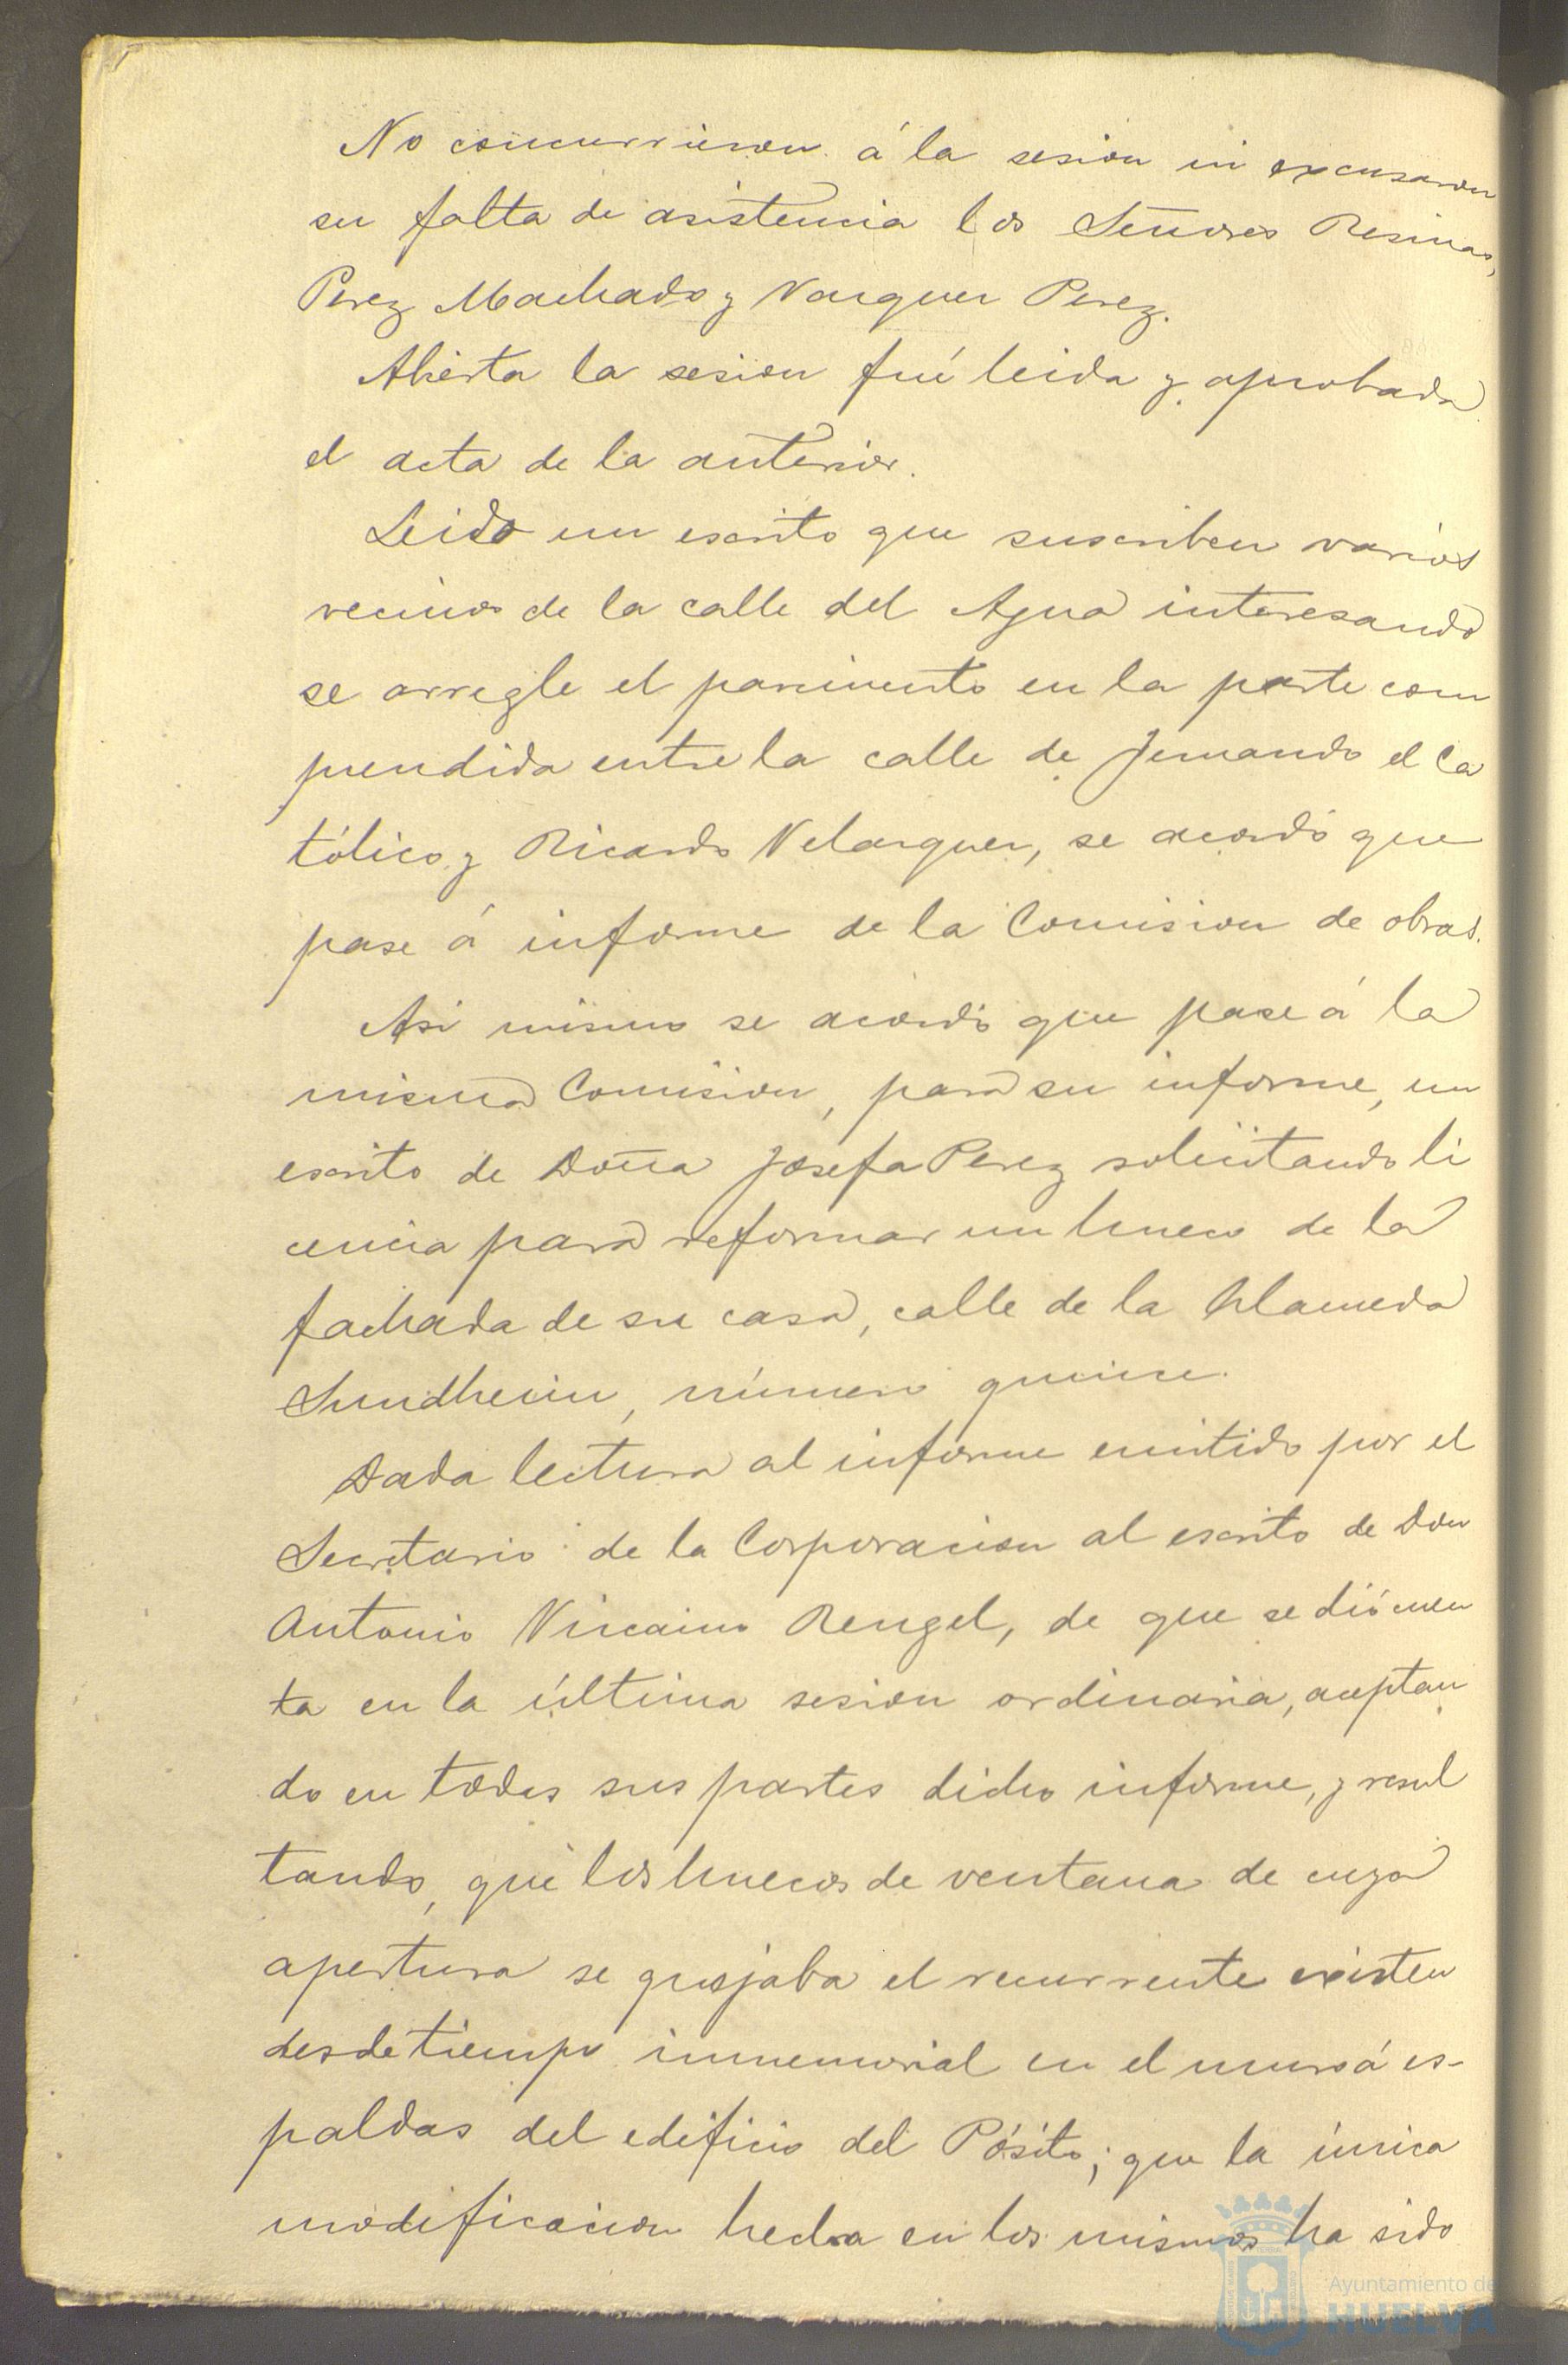 No concurrieron á la sesion ni excusaron
su falta de asistencia los Señores Resinas,
Perez Machado y Vazquez Perez.
Abierta la sesion fué leida y aprobada
el acta de la anterior.
Leido un escrito que suscriben varios
vecinos de la calle del Agua interesando
se arregle el pavimento en la parte com
prendida entre la calle de Fernando el Ca
tólico y Ricardo Velazquez, se acordó que
pase á informe de la Comision de obras.
Asi mismo se acordó que pase á la
misma Comision, para su informe, un
escrito de Doña Josefa Perez solicitando li
cencia para reformar un hueco de la
fachada de su casa, calle de la Alameda
Sundheim, número quince.
Dada lectura al informe emitido por el
Secretario de la Corporacion al escrito de Don
Antonio Vizcaino Rengel, de que se dió cuen
ta en la última sesion ordinaria, aceptan
do en todas sus partes dicho informe, y resul
tando, que los huecos de ventana de cuya
apertura se quejaba el recurrente existen
desde tiempo inmemorial en el muro á es-
paldas del edificio del Pósito; que la única
modificacion hecha en los mismos ha sido
Ayuntamiento de
HUELVA